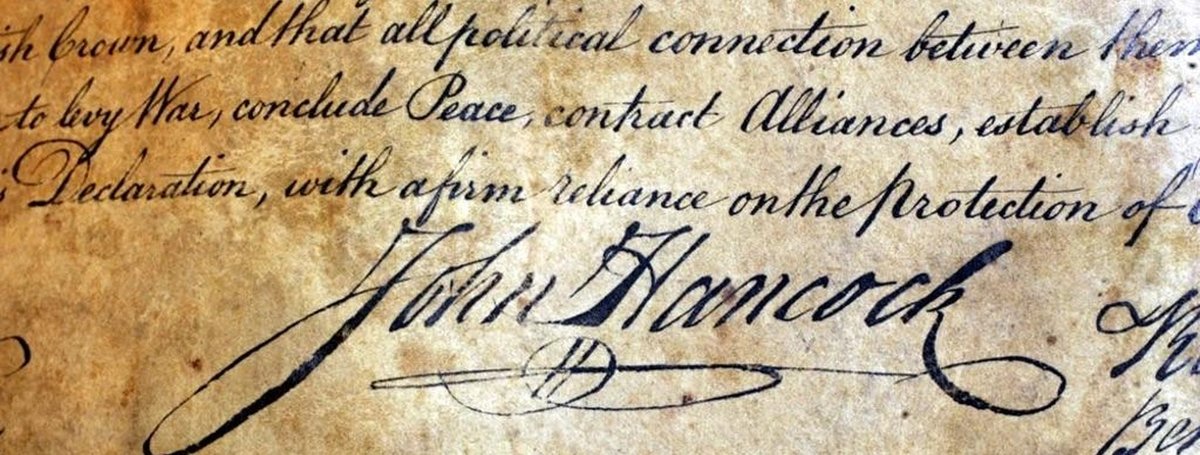 ish Crown, and that all political connection between them
to levy War, conclude Peace, contract Alliances, establish
Declaration, with a firm reliance on the Protection of
John Hancock